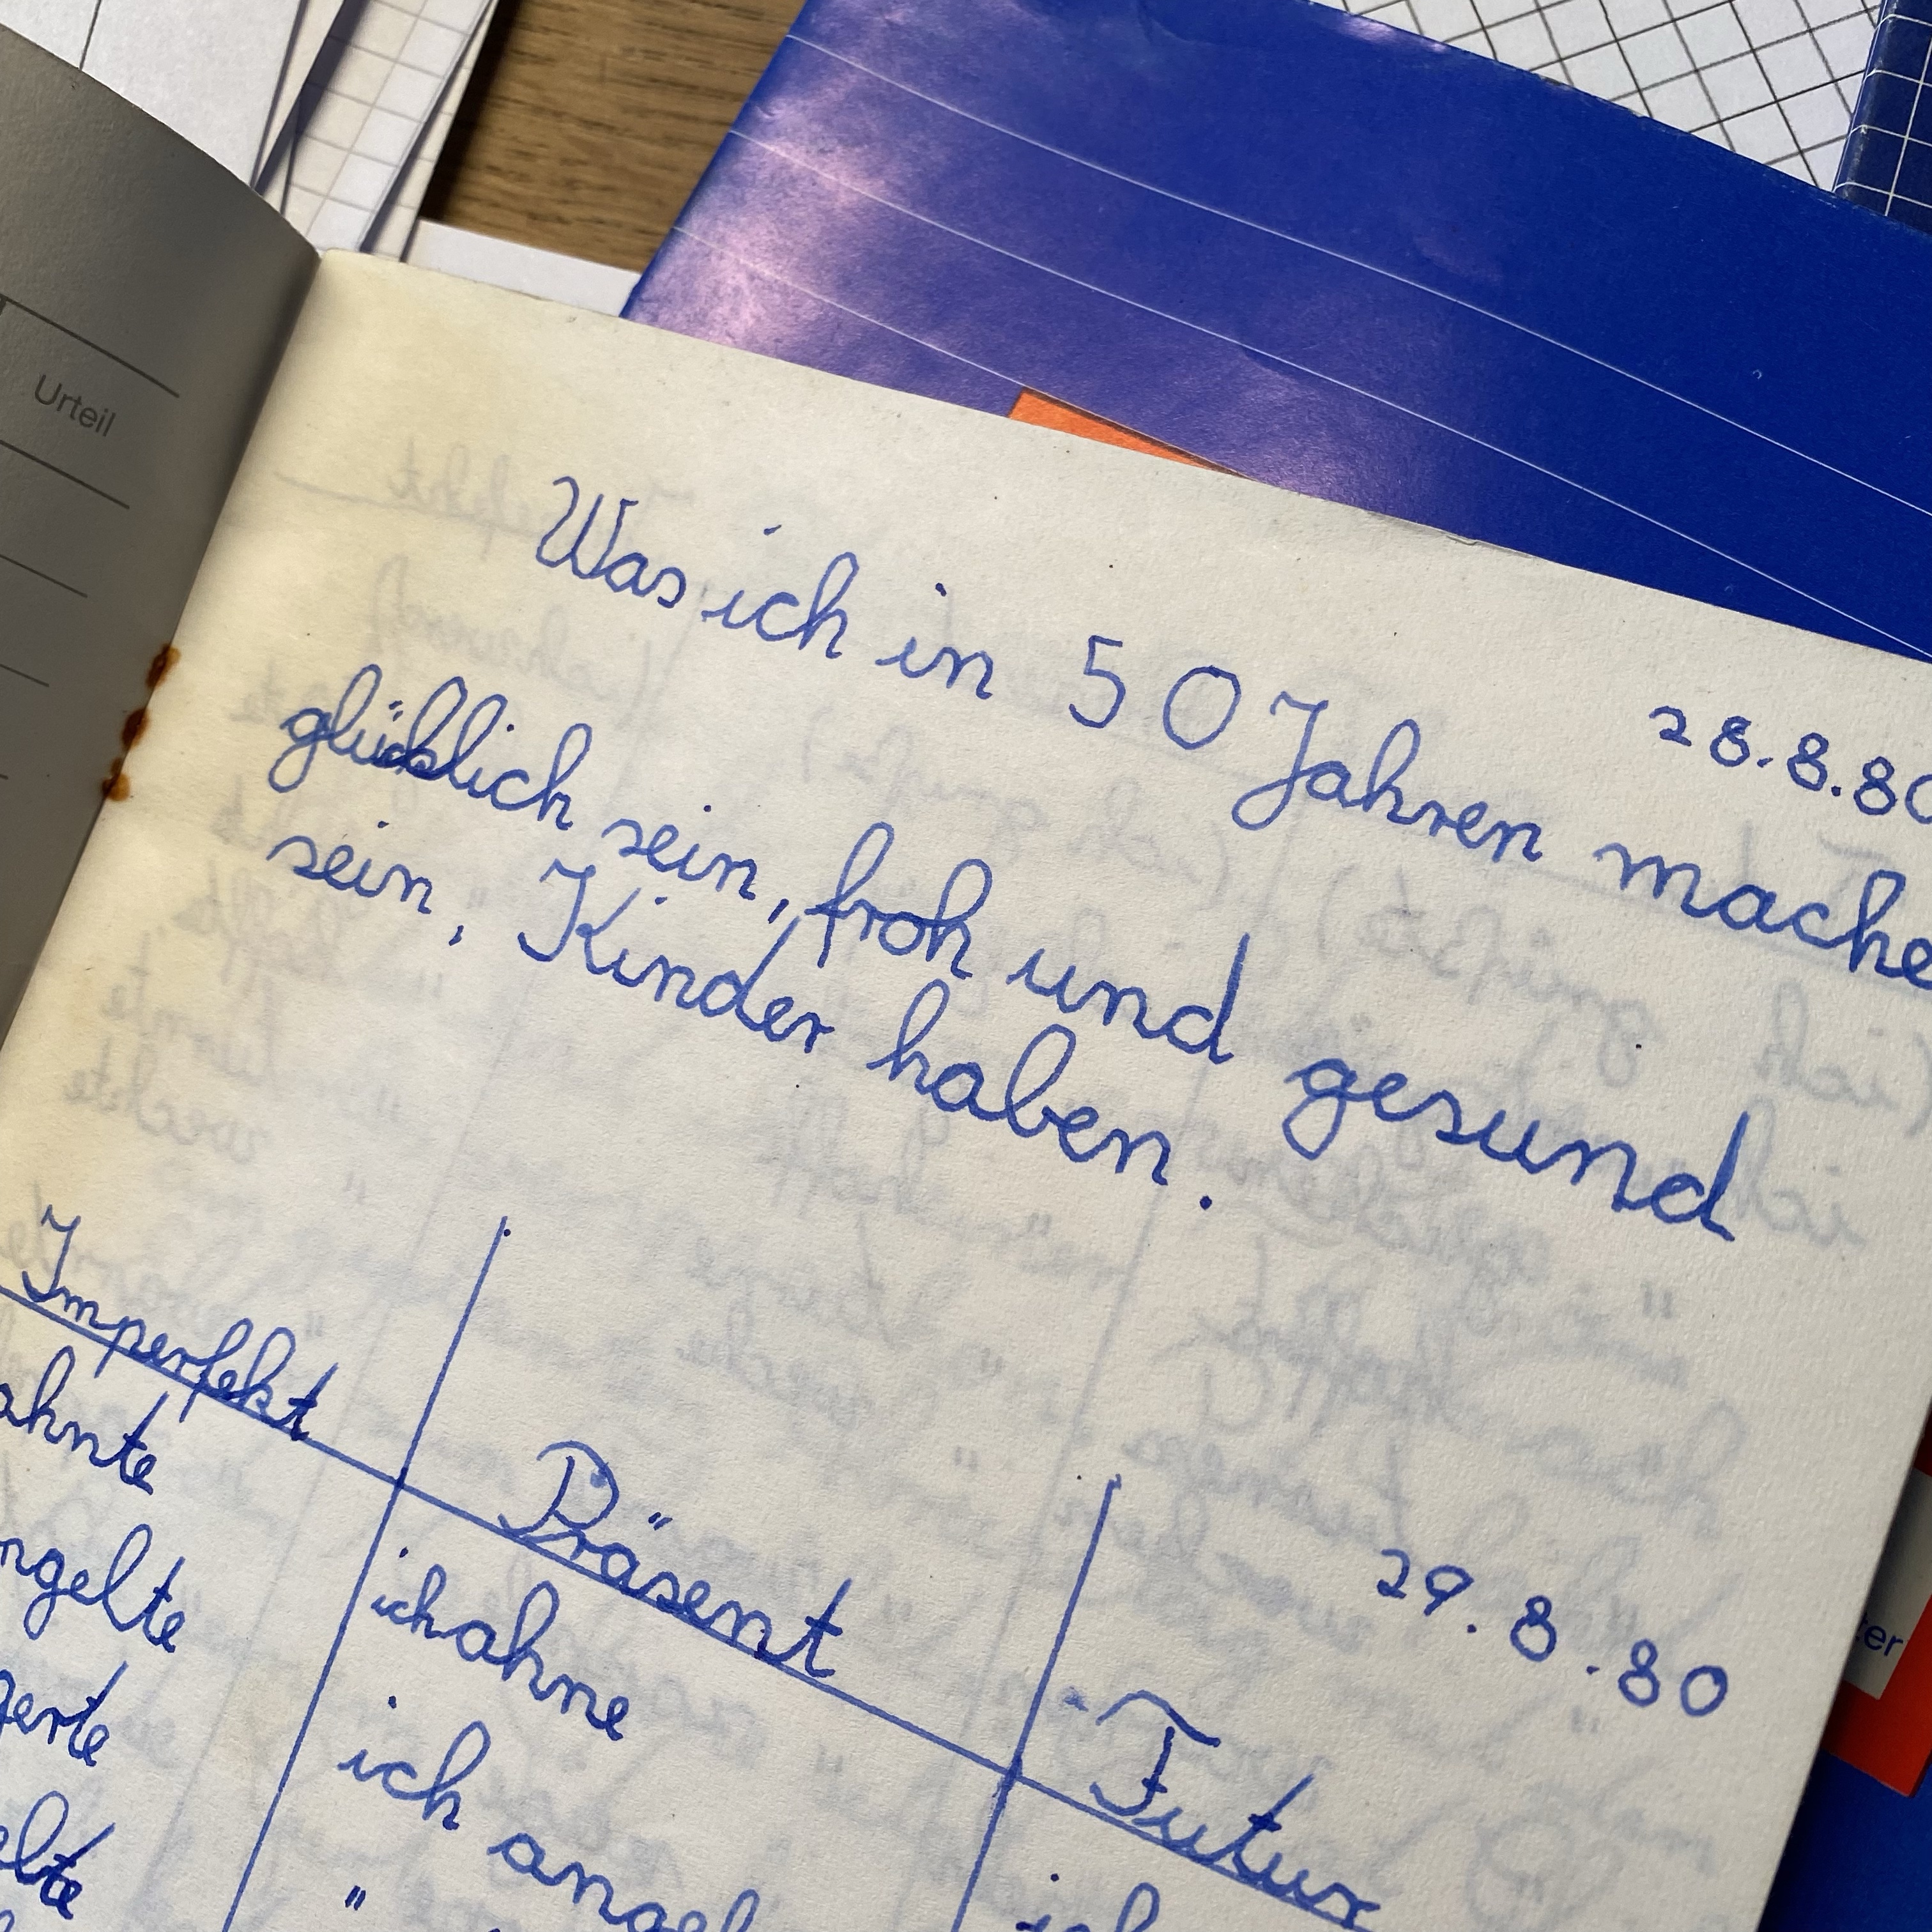 Urteil
28.8.80
Was ich in 50 Jahren mache
glücklich sein, froh und gesund
sein, Kinder haben.
29.8.80
Imperfekt Präsent Futur
ahnte ich ahne ich
ngelte ich angel
gerte "
elte
ter